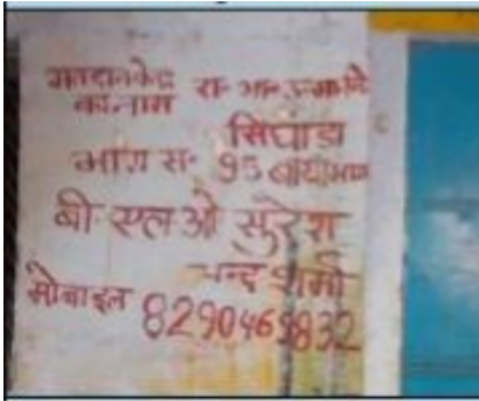 मतदान केन्द्र
का नाम रा॰ मा॰
सिघाडा
भाग स॰ 95 बायाँ भाग
बी एल ओ सुरेश
चन्द शर्मा
मोबाइल 8290469832